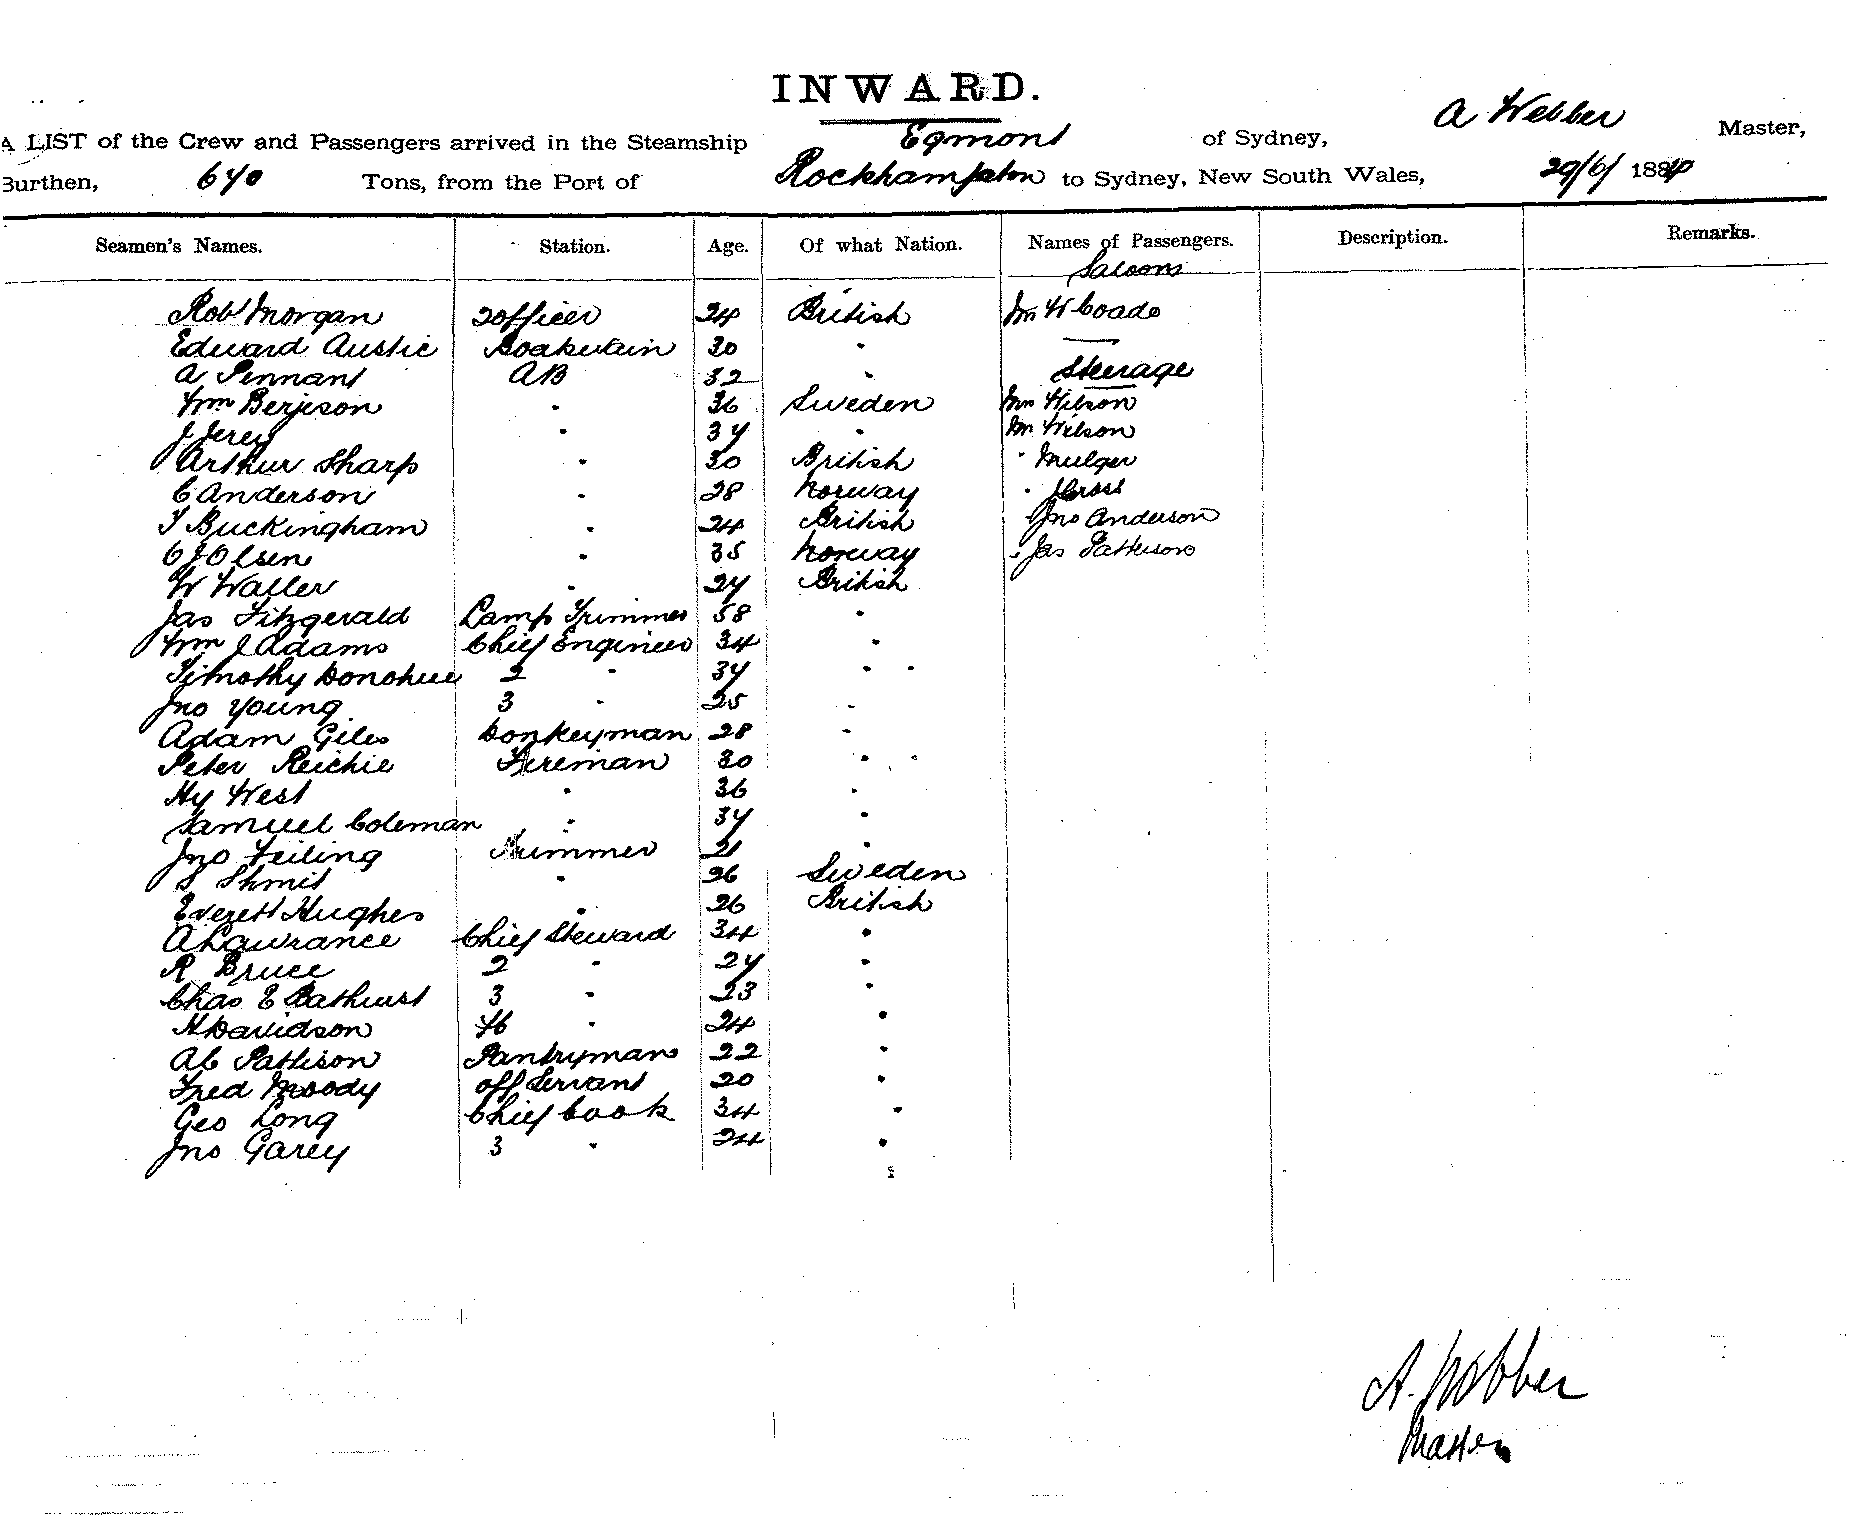 INWARD.
A LIST of the Crew and Passengers arrived in the Steamship Egmont of Sydney, A Webber Master,
Burthen, 640 Tons, from the Port of Rockhampton to Sydney, New South Wales, 29/6/ 1884
Seamen's Names. Station. Age. Of what Nation. Names of Passengers. Description. Remarks.
Saloons
Robt Morgan 2 officer 24 British Mr W Coade
Edward Austie Boatswain 30 "
A Pennant AB 32 " Steerage
Wm Berjeson " 36 Sweden Mrs Wilson
J Jerey " 37 " Mr Wilson
Arthur Sharp " 30 British " Mulger
C Anderson " 28 Norway "
T Buckingham " 24 British " Jno Anderson
C J Olsen " 35 Norway " Jas Patterson
W Waller " 27 British
Jas Fitzgerald Lamp Trimmer 58 "
Wm J Adams Chief Engineer 34 "
Timothy Donohue 2 " 37 " "
Jno Young 3 " 25 "
Adam Giles Donkeyman 28 "
Peter Reichie Fireman 30 " "
Hy West " 36 "
Samuel Coleman " 37 "
Jno Feiling Trimmer 21 "
S Shmit " 26 Sweden
Everett Hughes " 26 British
A Lawrance Chief Steward 34 "
R Bruce 2 " 27 "
Chas E Bathurst 3 " 23 "
H Davidson " 24 "
Ab Pattison Pantryman 22 "
Fred Moody off Servant 20 "
Geo Long Chief Cook 34 "
Jno Garey 3 " 24 "
A. Webber
Master